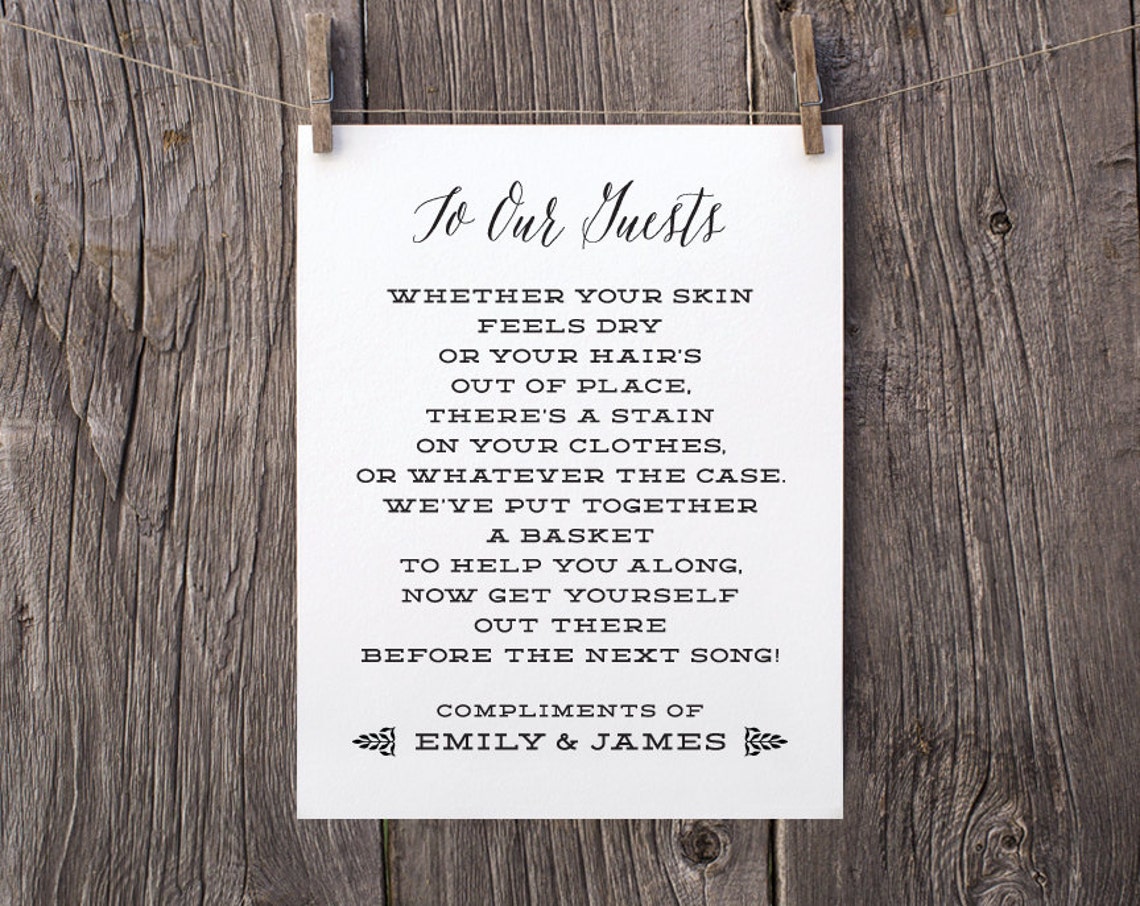 To Our Guests
WHETHER YOUR SKIN
FEELS DRY
OR YOUR HAIR'S
OUT OF PLACE,
THERE'S A STAIN
ON YOUR CLOTHES,
OR WHATEVER THE CASE.
WE'VE PUT TOGETHER
A BASKET
TO HELP YOU ALONG,
NOW GET YOURSELF
OUT THERE
BEFORE THE NEXT SONG!
COMPLIMENTS OF
EMILY & JAMES